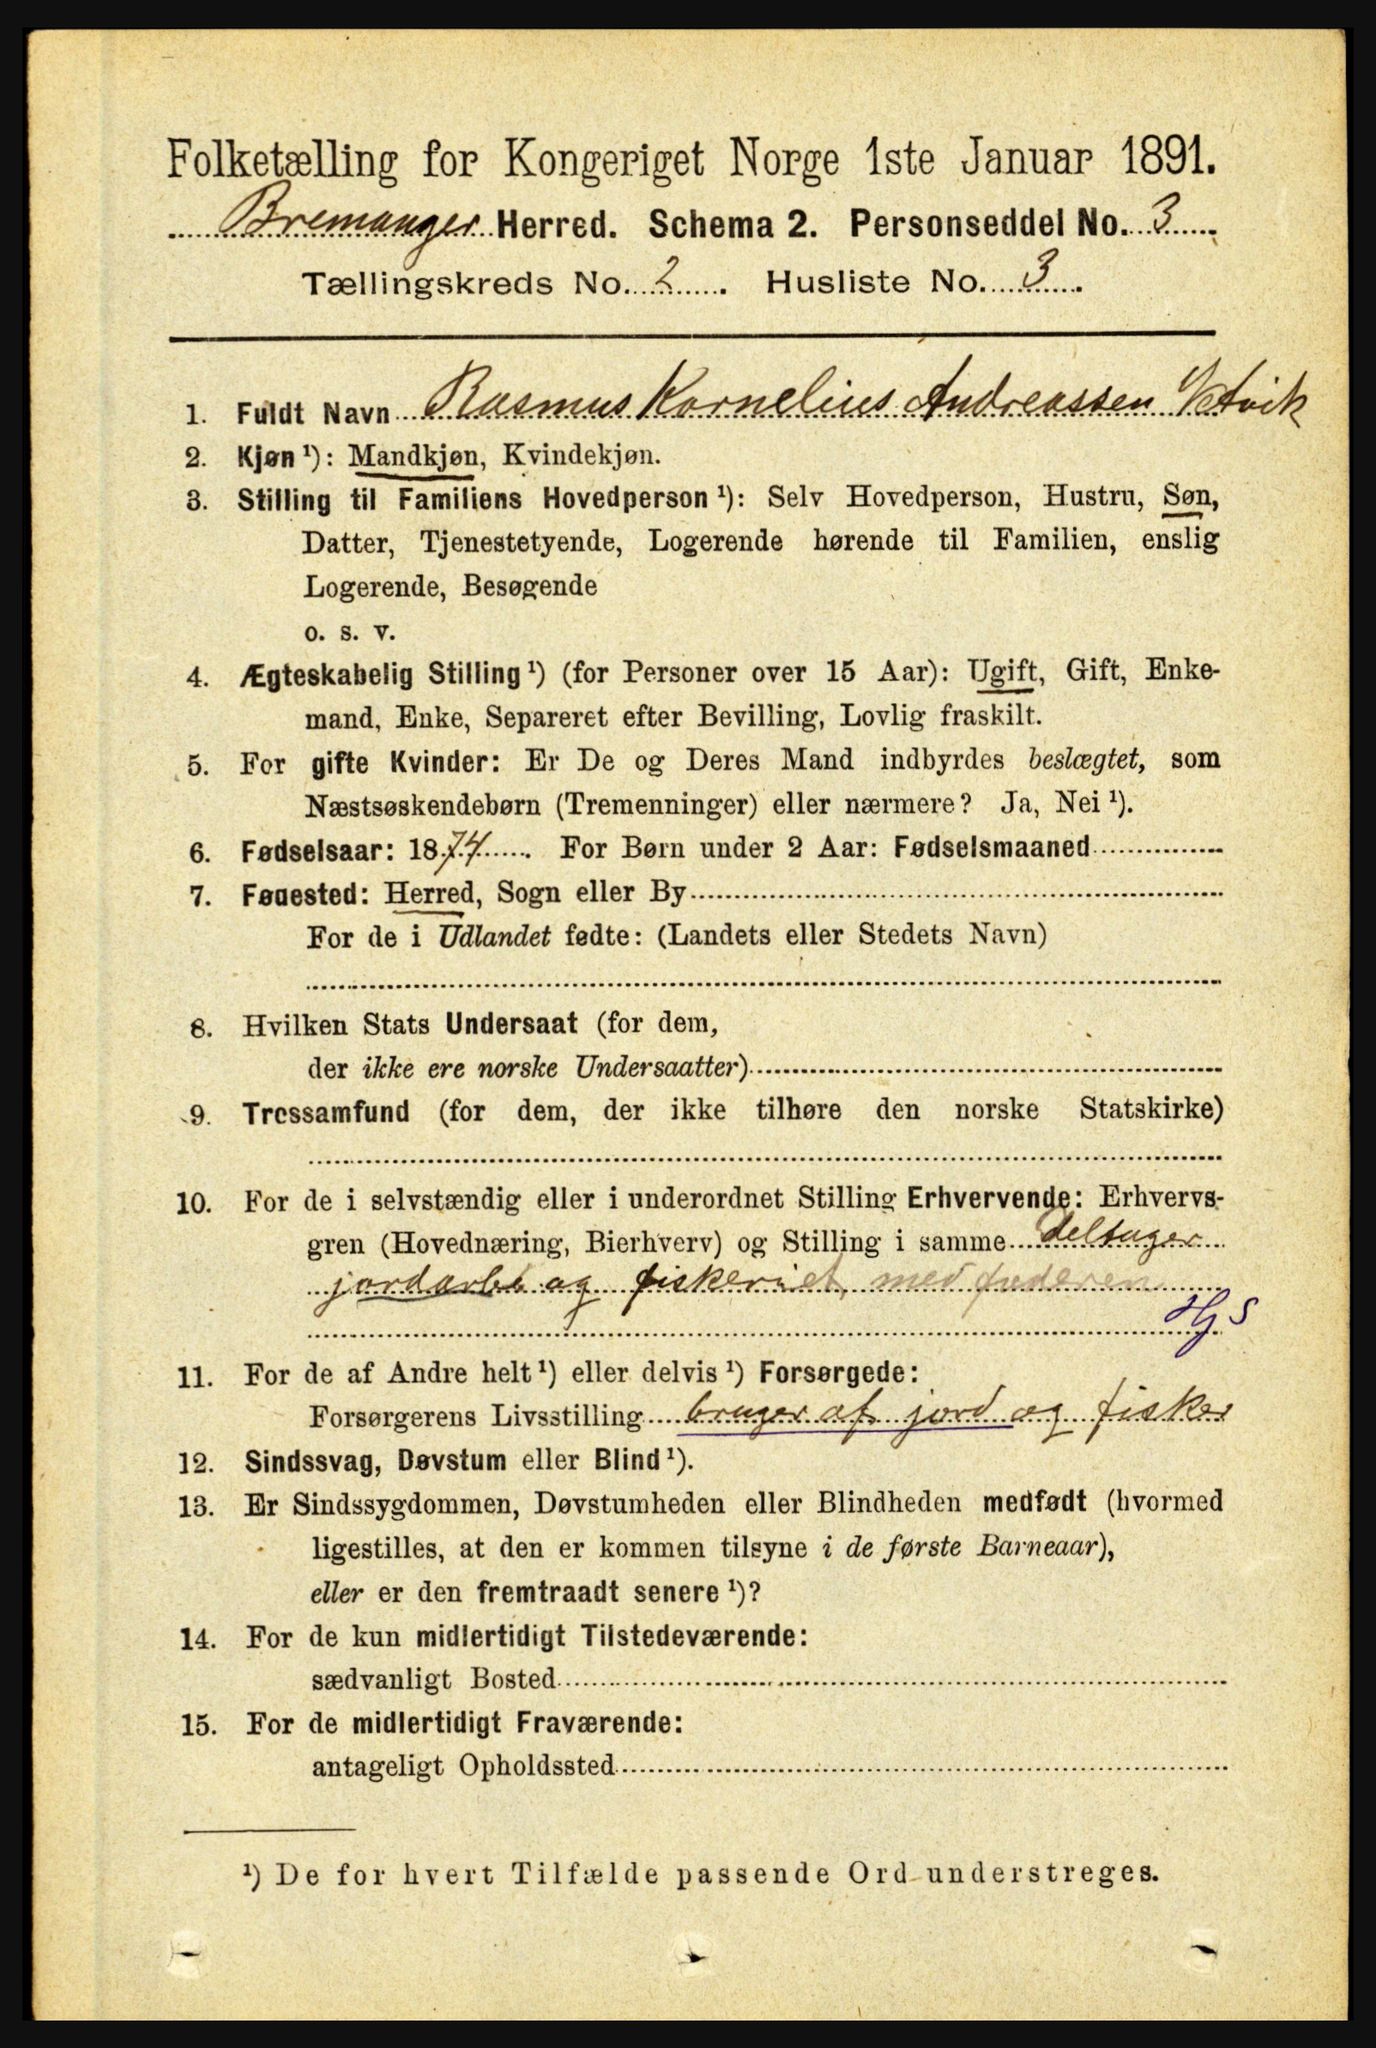 Folketælling for Kongeriget Norge 1ste Januar 1891.
Bremanger Herred. Schema 2. Personseddel No. 3
Tællingskreds No. 2. Husliste No. 3.
1. Fuldt Navn Rasmus Kornelius Andreassen
2. Kjøn ¹): Mandkjøn, Kvindekjøn.
3. Stilling til Familiens Hovedperson ¹): Selv Hovedperson, Hustru, Søn,
Datter, Tjenestetyende, Logerende hørende til Familien, enslig
Logerende, Besøgende
o. s. v.
4. Ægteskabelig Stilling ¹) (for Personer over 15 Aar): Ugift, Gift, Enke-
mand, Enke, Separeret efter Bevilling, Lovlig fraskilt.
5. For gifte Kvinder: Er De og Deres Mand indbyrdes beslægtet, som
Næstsøskendebørn (Tremenninger) eller nærmere? Ja, Nei ¹).
6. Fødselsaar: 1874. For Børn under 2 Aar: Fødselsmaaned
7. Fødested: Herred, Sogn eller By
For de i Udlandet fødte: (Landets eller Stedets Navn)
8. Hvilken Stats Undersaat (for dem,
der ikke ere norske Undersaatter)
9. Trossamfund (for dem, der ikke tilhøre den norske Statskirke)
10. For de i selvstændig eller i underordnet Stilling Erhvervende: Erhvervs-
gren (Hovednæring, Bierhverv) og Stilling i samme deltager
jordarb og fiskeriet med faderen
Hj S
11. For de af Andre helt ¹) eller delvis ¹) Forsørgede:
Forsørgerens Livsstilling bruger af jord og fisker
12. Sindssvag, Døvstum eller Blind ¹).
13. Er Sindssygdommen, Døvstumheden eller Blindheden medfødt (hvormed
ligestilles, at den er kommen tilsyne i de første Barneaar),
eller er den fremtraadt senere ¹)?
14. For de kun midlertidigt Tilstedeværende:
sædvanligt Bosted
15. For de midlertidigt Fraværende:
antageligt Opholdssted
¹) De for hvert Tilfælde passende Ord understreges.